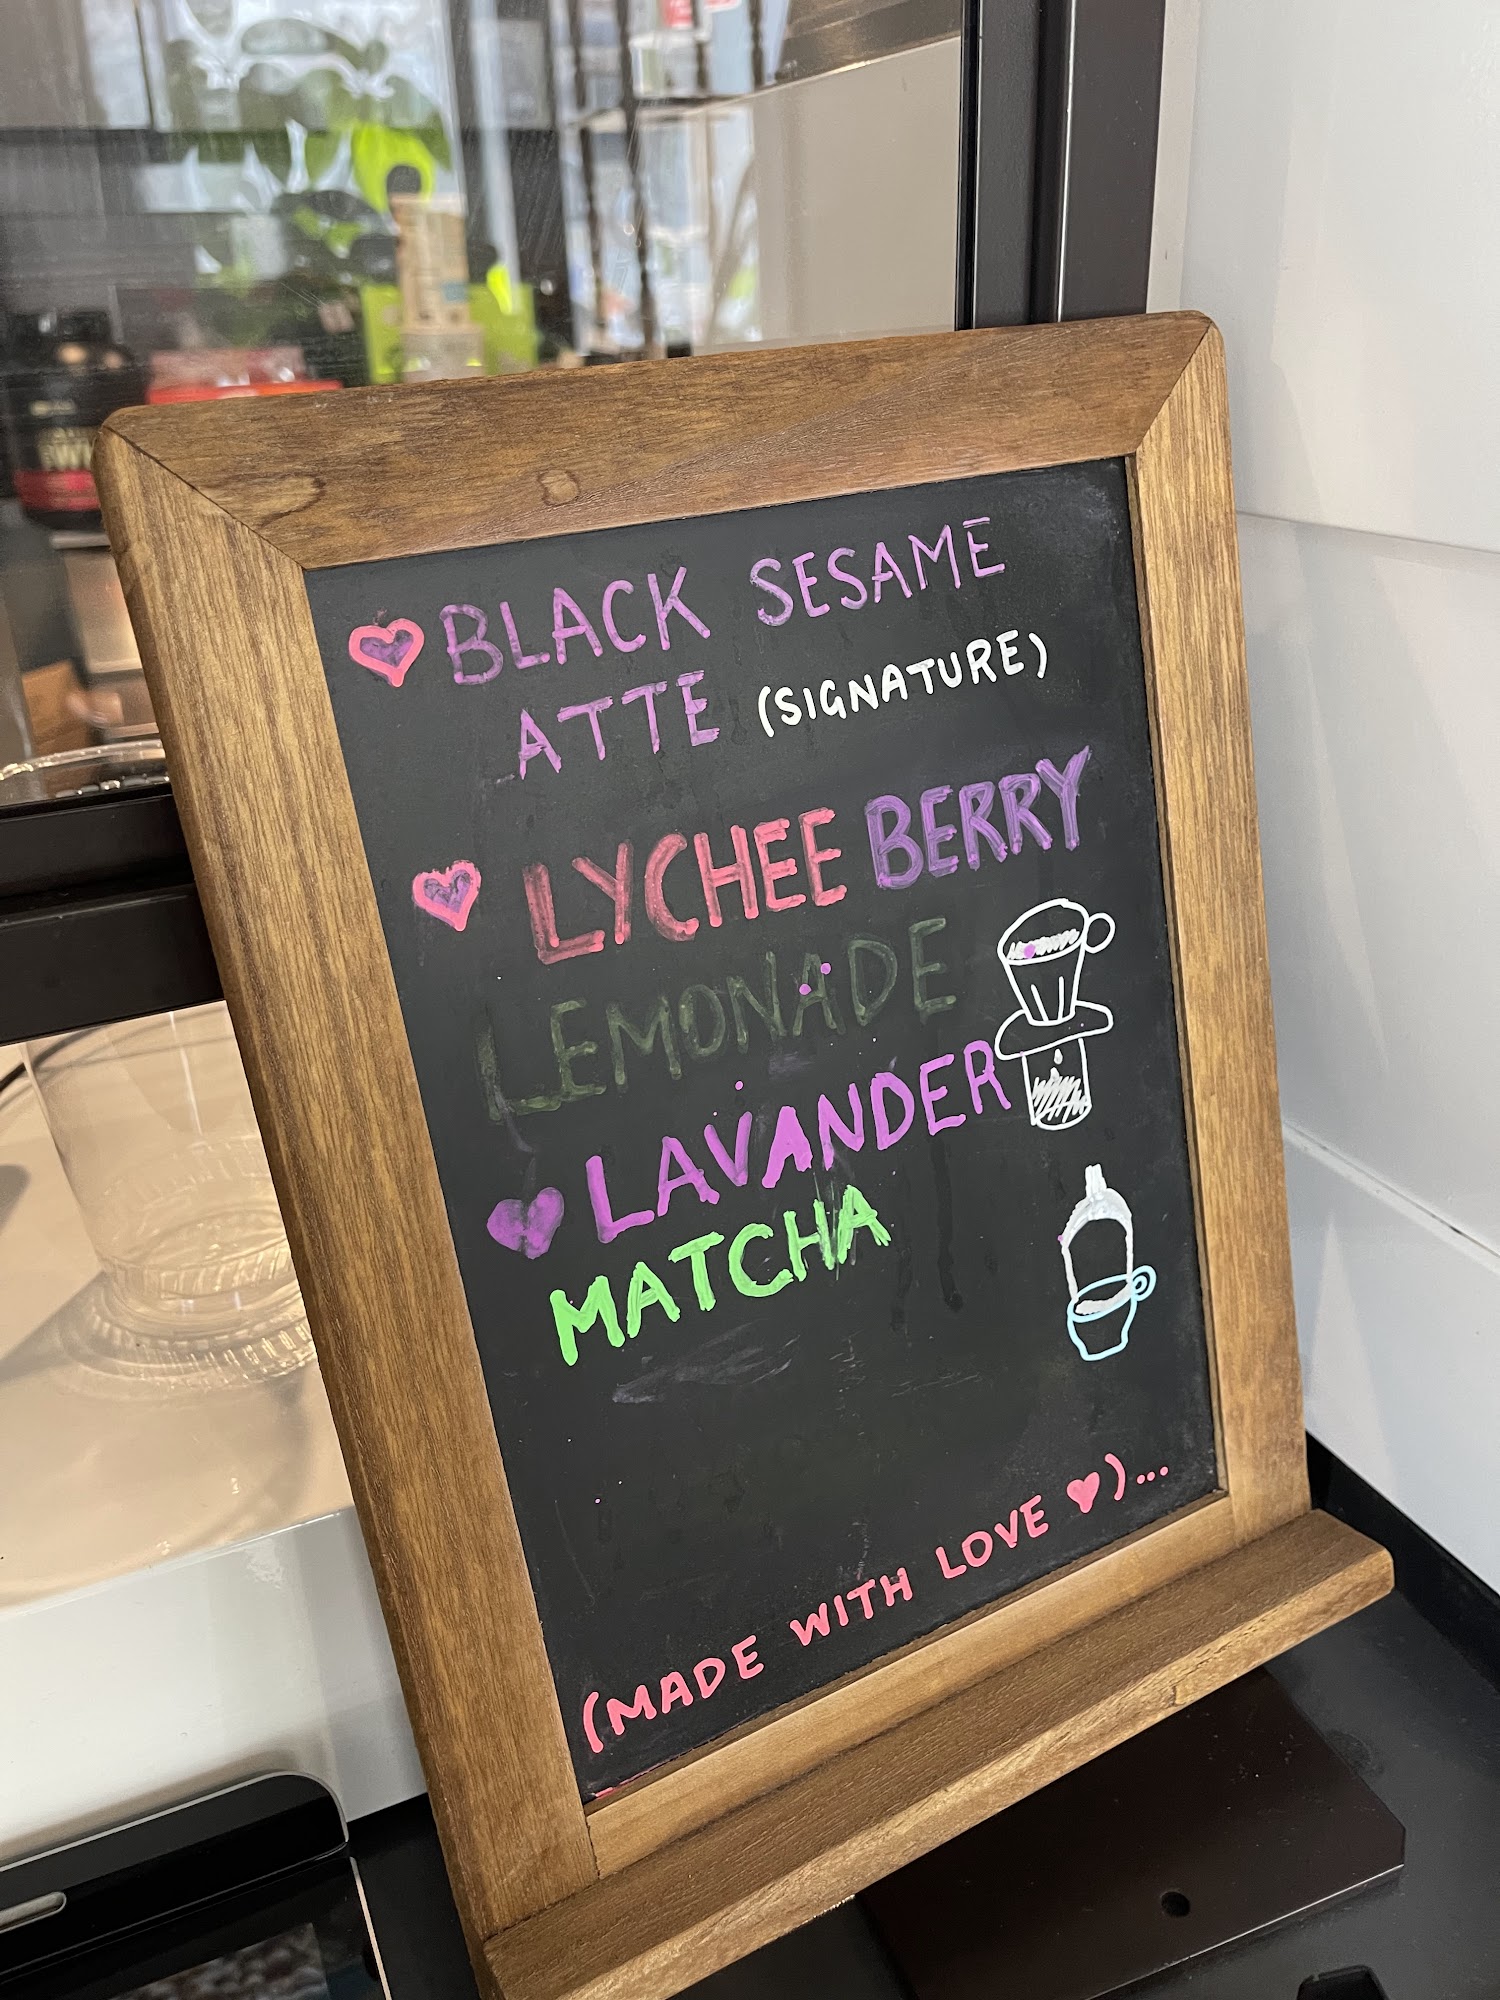 BLACK SESAME
ATTE (SIGNATURE)
LYCHEE BERRY
LEMONADE
LAVANDER
MATCHA
(MADE WITH LOVE ♥)...